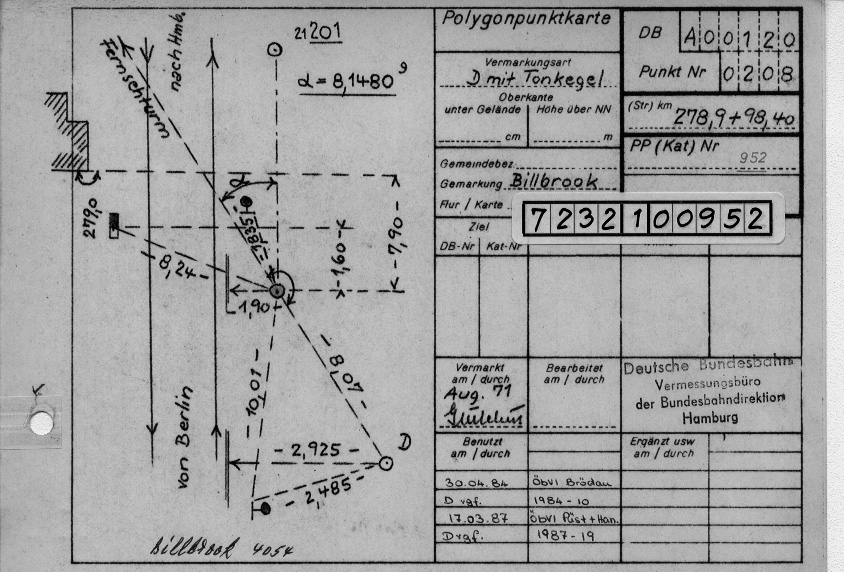 21201
α = 8,1480 g
nach Hmb.
Fernsehturm
279,0
α
1,835
8,24
1,60
7,90
1,90
10,01
8,07
von Berlin
D
2,925
2,485
Billbrook 4054
Polygonpunktkarte
DB A00120
Punkt Nr 0208
Vermarkungsart
D mit Tonkegel
Oberkante
unter Gelände
Höhe über NN
cm
m
(Str) km 278,9+98,40
PP (Kat) Nr
952
Gemeindebez.
Gemarkung Billbrook
Flur / Karte
7232100952
Ziel
DB-Nr Kat-Nr
Vermarkt
am / durch
Aug. 71
Bearbeitet
am / durch
Deutsche Bundesbahn
Vermessungsbüro
der Bundesbahndirektion
Hamburg
Benutzt
am / durch
Ergänzt usw
am / durch
30.04.84 ÖbVI Brödau
D vgf. 1984-10
17.03.87 ÖbVI Püst+Han.
D vgf. 1987-19